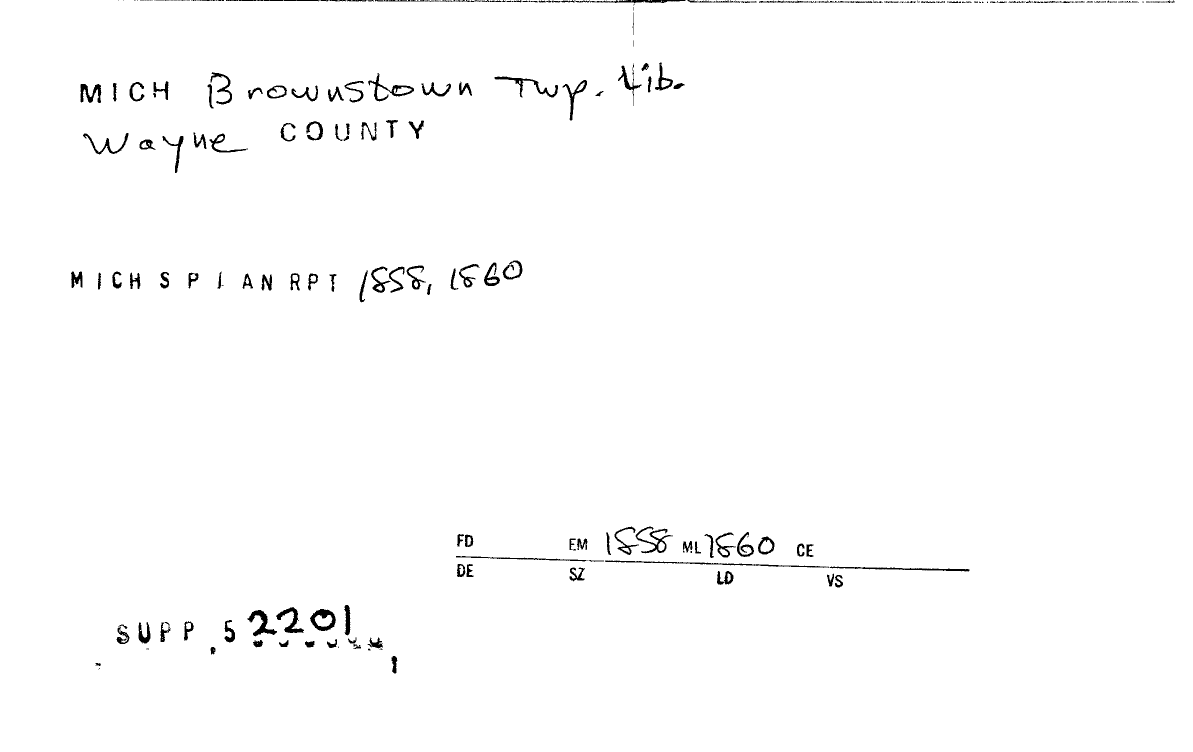 MICH Brownstown Twp. Lib.
Wayne COUNTY
MICH S P I AN RPT 1858, 1860
FD EM 1858 ML 1860 CE
DE SZ LD VS
SUPP 5 2201